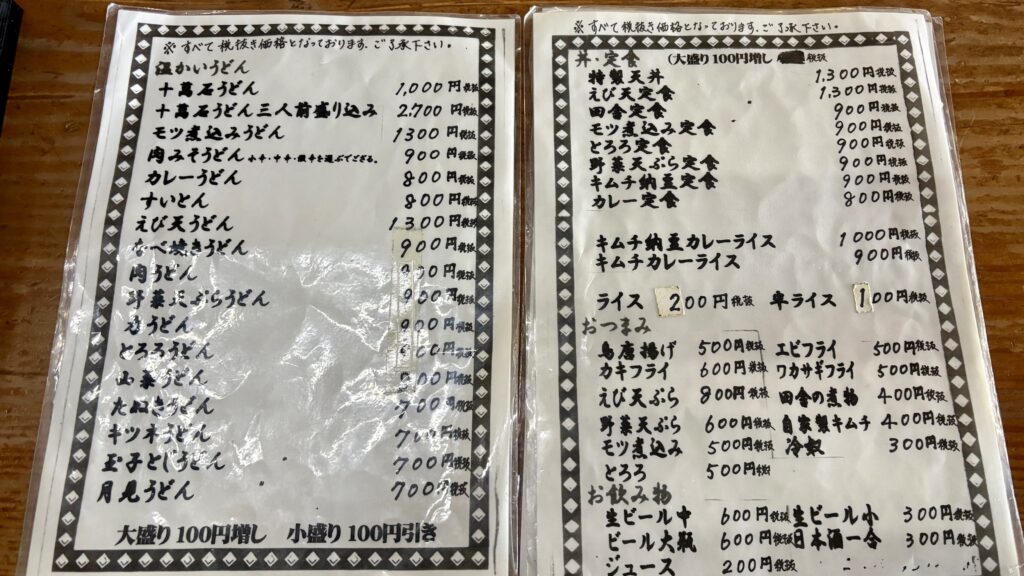 ※ すべて税抜き価格となっております。ご了承下さい。
温かいうどん
十萬石うどん 1,000円税抜
十萬石うどん三人前盛り込み 2,700円税抜
モツ煮込みうどん 1300円税抜
肉みそうどん 900円税抜
カレーうどん 800円税抜
すいとん 800円税抜
えび天うどん 1,300円税抜
なべ焼きうどん 900円税抜
肉うどん 900円税抜
野菜天ぷらうどん 900円税抜
うどん 900円税抜
とろろうどん 円税抜
山菜うどん 00円税抜
たぬきうどん 700円税抜
キツネうどん 700円税抜
玉子とじうどん 700円税抜
月見うどん 700円税抜
大盛り100円増し 小盛り100円引き
※ すべて税抜き価格となっております。ご了承下さい。
丼・定食 (大盛り100円増し 税抜
特製天丼 1,300円税抜
えび天定食 1,300円税抜
田舎定食 900円税抜
モツ煮込み定食 900円税抜
とろろ定食 900円税抜
野菜天ぷら定食 900円税抜
キムチ納豆定食 900円税抜
カレー定食 800円税抜
キムチ納豆カレーライス 1000円税抜
キムチカレーライス 900円税抜
ライス 200円税抜 半ライス 100円税抜
おつまみ
鳥唐揚げ 500円税抜 エビフライ 500円税抜
カキフライ 600円税抜 ワカサギフライ 500円税抜
えび天ぷら 800円税抜 田舎の煮物 400円税抜
野菜天ぷら 600円税抜 自家製キムチ 400円税抜
モツ煮込み 500円税抜 冷奴 300円税抜
とろろ 500円税抜
お飲み物
生ビール中 600円税抜 生ビール小 300円税抜
ビール大瓶 600円税抜 日本酒一合 300円税抜
ジュース 200円税抜